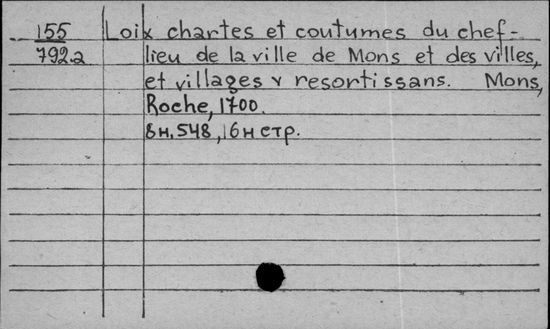 155 Loix chartes et coutumes du chef-
792.a lieu de la ville de Mons et des villes,
et villages y resortissans. Mons,
Roche, 1700.
8н, 548, 16н стр.